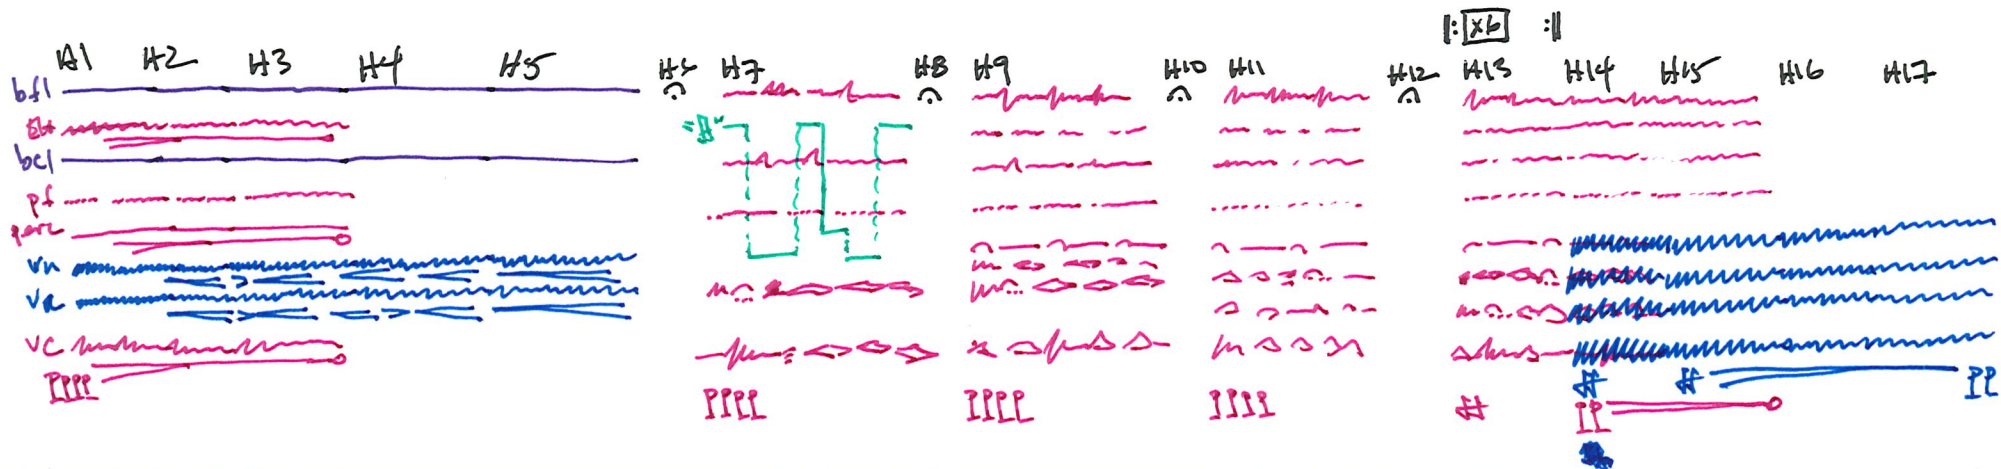 x6
H1 H2 H3 H4 H5 H6 H7 H8 H9 H10 H11 H12 H13 H14 H15 H16 H17
bfl
bcl
pf
perc
vn
va
vc
pppp pppp pppp pppp ff pp ff ff pp